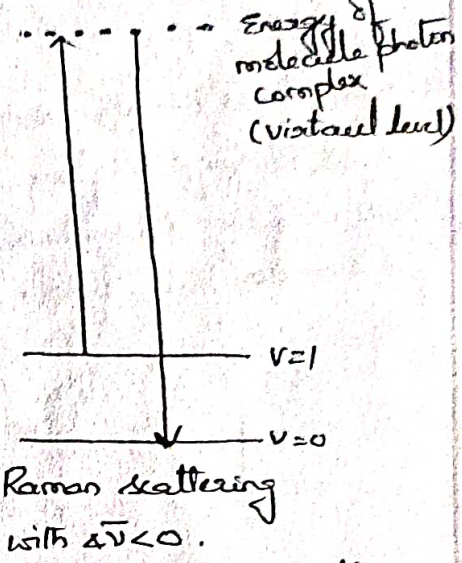 Energy of
molecule photon
complex
(virtual level)
V=1
V=0
Raman scattering
with Δν̄<0.